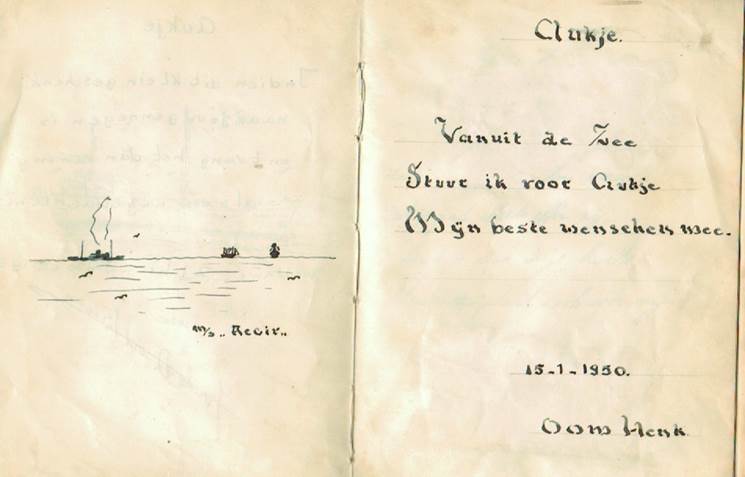 m/s „Recir„
Aukje.
Vanuit de Zee
Stuur ik voor Aukje
Mijn beste wenschen mee.
15-1-1950.
Oom Henk